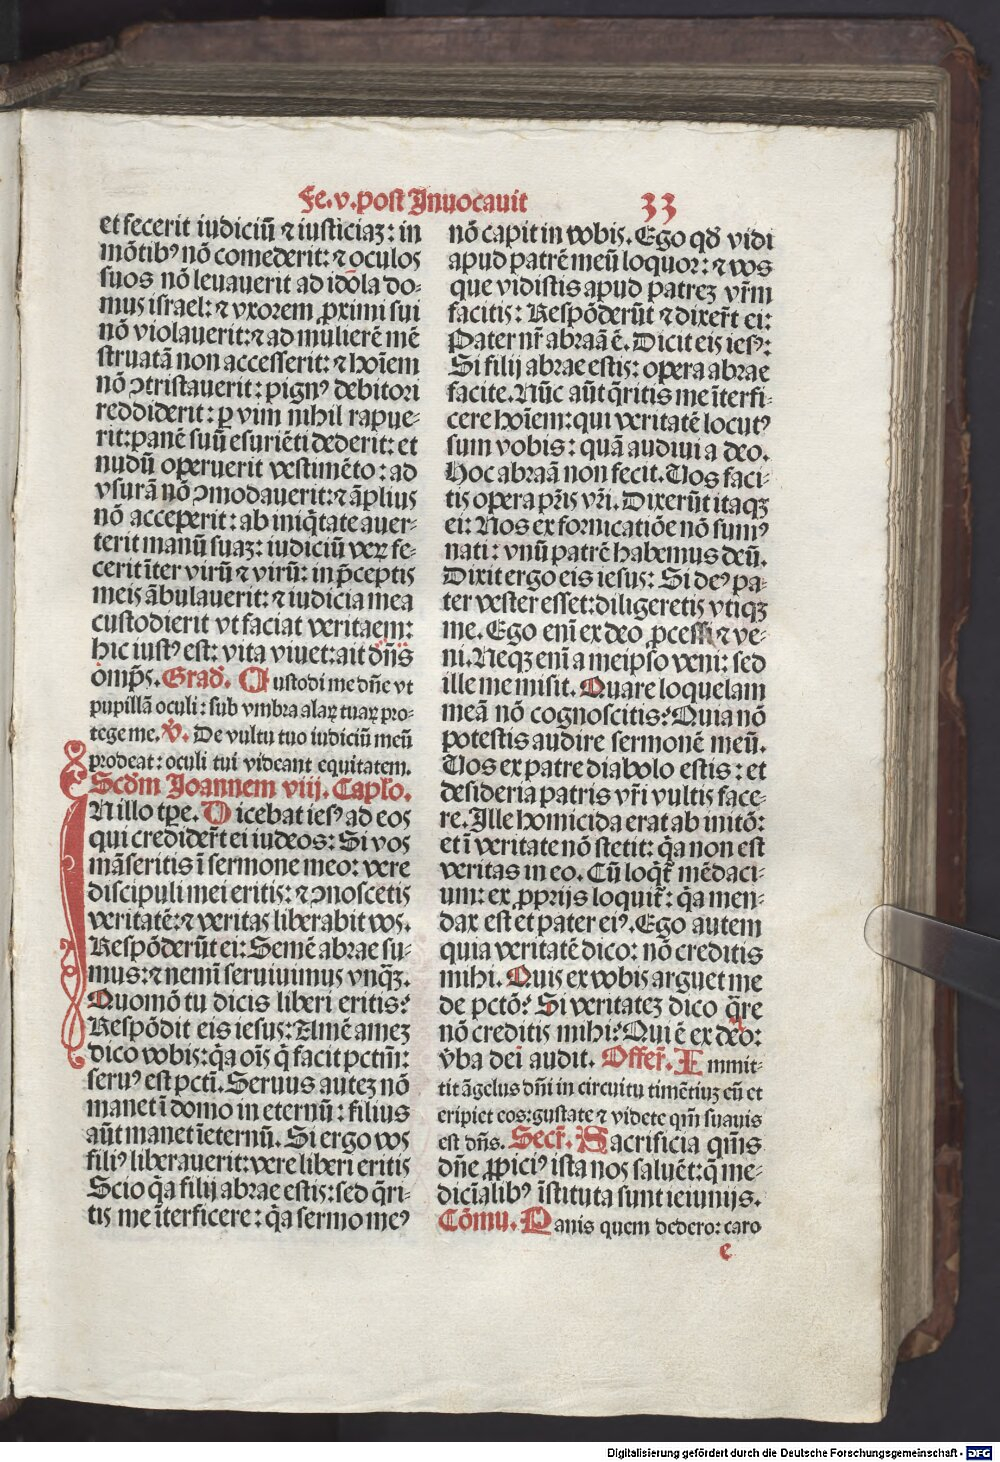 Fe.v.post Inuocauit 33
et fecerit iudiciū ⁊ iusticiaꝫ: in
mōtibꝰ nō comederit: ⁊ oculos
suos nō leuauerit ad idola do-
mus israel: ⁊ vxorem ꝓximi sui
nō violauerit: ⁊ ad mulierē mē
struatā non accesserit: ⁊ hoīem
nō ↄtristauerit: pignꝰ debitori
reddiderit: ꝑ vim nihil rapue-
rit: panē suū esuriēti dederit: et
nudū operuerit vestimēto: ad
vsurā nō ↄmodauerit: ⁊ āplius
nō acceperit: ab iniq̄tate auer-
terit manū suaꝫ: iudiciū veꝝ fe-
cerit īter virū ⁊ virū: in p̄ceptis
meis ābulauerit: ⁊ iudicia mea
custodierit vt faciat veritaem:
hic iustꝰ est: vita viuet: ait dn̄s
omp̄s. Grad̄. Custodi me dn̄e vt
pupillā oculi: sub vmbra alaꝝ tuaꝝ pro-
tege me. V̄. De vultu tuo iudiciū meū
prodeat: oculi tui videant equitatem.
Scd̄m Joannem viij. Capľo.
IN illo tp̄e. Dicebat iesꝰ ad eos
qui credider̄t ei iudeos: Si vos
māseritis ī sermone meo: vere
discipuli mei eritis: ⁊ ↄnoscetis
veritatē: ⁊ veritas liberabit vos.
Respōderūt ei: Semē abrae su-
mus: ⁊ nemī seruiuimus vnq̄ꝫ.
Quomō tu dicis liberi eritis?
Respōdit eis iesus: Amē ameꝫ
dico vobis: q̄a oīs q̄ facit pctm̄:
seruꝰ est pcti. Seruus auteꝫ nō
manet ī domo in eternū: filius
aūt manet īeternū. Si ergo vos
filiꝰ liberauerit: vere liberi eritis
Scio q̄a filij abrae estis: sed q̄ri-
tis me īterficere: q̄a sermo meꝰ
nō capit in vobis. Ego qd̄ vidi
apud patrē meū loquor: ⁊ vos
que vidistis apud patreꝫ vr̄m
facitis: Respōderūt ⁊ dixer̄t ei:
Pater nr̄ abraā ē. Dicit eis iesꝰ:
Si filij abrae estis: opera abrae
facite. Nūc aūt q̄ritis me īterfi-
cere hoīem: qui veritatē locutꝰ
sum vobis: quā audiui a deo.
Hoc abraā non fecit. Uos faci-
tis opera pr̄is vr̄i. Dixerūt itaqꝫ
ei: Nos ex fornicatiōe nō sumꝰ
nati: vnū patrē habemus deū.
Dixit ergo eis iesus: Si deꝰ pa-
ter vester esset: diligeretis vtiqꝫ
me. Ego enī ex deo ꝓcessi ⁊ ve-
ni. Neqꝫ enī a meipso veni: sed
ille me misit. Quare loquelam
meā nō cognoscitis? Quia nō
potestis audire sermonē meū.
Uos ex patre diabolo estis: et
desideria patris vr̄i vultis face-
re. Ille homicida erat ab initō:
et ī veritate nō stetit: q̄a non est
veritas in eo. Cū loqt̄ mēdaci-
um: ex ꝓprijs loquit̄: q̄a men-
dax est et pater eiꝰ. Ego autem
quia veritatē dico: nō creditis
mihi. Quis ex vobis arguet me
de pctō? Si veritateꝫ dico q̄re
nō creditis mihi? Qui ē ex deo:
v̄ba dei audit. Offer̄. Immit-
tit āgelus dn̄i in circuitu timētiuꝫ eū et
eripiet eos: gustate ⁊ videte qm̄ suauis
est dn̄s. Secr̄. Sacrificia qm̄is
dn̄e ꝓpiciꝰ ista nos saluēt: q̄ me-
dicīalibꝰ īstituta sunt ieiunijs.
Cōmu. Panis quem dedero: caro
e
Digitalisierung gefördert durch die Deutsche Forschungsgemeinschaft - DFG